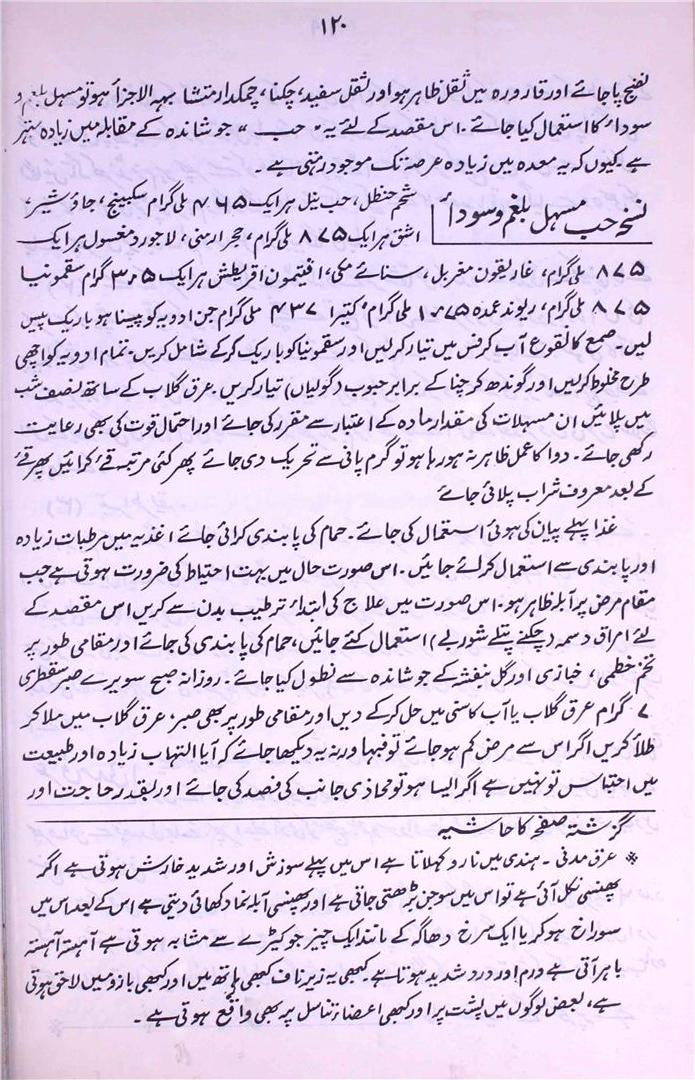 ۱۲۰
نضج پا جائے اور قارورہ میں ثقل ظاہر ہو اور ثقل سفید، چکنا، چمکدار متشابہہ الاجزأ ہو تو مسہل بلغم و
سودأ کا استعمال کیا جائے۔ اس مقصد کے لئے یہ "حب" جوشاندہ کے مقابلہ میں زیادہ بہتر
ہے کیوں کہ یہ معدہ میں زیادہ عرصہ تک موجود رہتی ہے۔
نسخہ حب مسہل بلغم و سودأ
شحم حنظل، حب نیل ہر ایک ۴۶۵ ملی گرام سکبینج، جاؤشیر،
اشق ہر ایک ۸۷۵ ملی گرام، حجر ارمنی، لاجورد مغسول ہر ایک
۸۷۵ ملی گرام، غاریقون مغربل، سنائے مکی، افیتمون اقریطش ہر ایک ۳٫۵ گرام سقمونیا
۸۷۵ ملی گرام، ریوند عمدہ ۱٫۷۵ ملی گرام، کتیرا ۴۳۷ ملی گرام جن ادویہ کو پیسنا ہو باریک پیس
لیں۔ صمغ کا نقوع آب کرفس میں تیار کرلیں اور سقمونیا کو باریک کرکے شامل کریں۔ تمام ادویہ کو اچھی
طرح مخلوط کرلیں اور گوندھ کر چنا کے برابر حبوب (گولیاں) تیار کریں۔ عرق گلاب کے ساتھ نصف شب
میں پلائیں ان مسہلات کی مقدار مادہ کے اعتبار سے مقرر کی جائے اور احتمال قوت کی بھی رعایت
رکھی جائے۔ دوا کا عمل ظاہر نہ ہو رہا ہو تو گرم پانی سے تحریک دی جائے پھر کئی مرتبہ قے کرائیں پھر قے
کے بعد معروف شراب پلائی جائے
غذا پہلے بیان کی ہوئی استعمال کی جائے۔ حمام کی پابندی کرائی جائے اغذیہ میں مرطبات زیادہ
اور پابندی سے استعمال کرائے جائیں۔ اس صورت حال میں بہت احتیاط کی ضرورت ہوتی ہے جب
مقام مرض پر آبلہ ظاہر ہو۔ اس صورت میں علاج کی ابتدأ ترطیب بدن سے کریں اس مقصد کے
لئے امراق دسمہ (چکنے پتلے شوربے) استعمال کئے جائیں، حمام کی پابندی کی جائے اور مقامی طور پر
تخم خطمی، خبازی اور گل بنفشہ کے جوشاندہ سے نطول کیا جائے۔ روزانہ صبح سویرے صبر سقطری
۷ گرام عرق گلاب یا آب کاسنی میں حل کرکے دیں اور مقامی طور پر بھی صبر، عرق گلاب میں ملا کر
طلأ کریں اگر اس سے مرض کم ہو جائے تو فبہا ورنہ یہ دیکھا جائے کہ آیا التہاب زیادہ اور طبیعت
میں احتباس تو نہیں ہے اگر ایسا ہو تو محاذی جانب کی فصد کی جائے اور بقدر حاجت اور
گزشتہ صفحے کا حاشیہ
* عرق مدنی۔ ہندی میں نارو کہلاتا ہے اس میں پہلے سوزش اور شدید خارش ہوتی ہے اگر
پھنسی نکل آئی ہے تو اس میں سوجن بڑھتی جاتی ہے اور پھنسی آبلہ نما دکھائی دیتی ہے اس کے بعد اس میں
سوراخ ہو کر یا ایک سرخ دھاگہ کے مانند ایک چیز جو کیڑے سے مشابہ ہوتی ہے آہستہ آہستہ
باہر آتی ہے ورم اور درد شدید ہوتا ہے کبھی یہ زیر ناف کبھی ہاتھ میں اور کبھی بازو میں لاحق ہوتی
ہے، بعض لوگوں میں پشت پر اور کبھی اعضاء تناسل پر بھی واقع ہوتی ہے۔